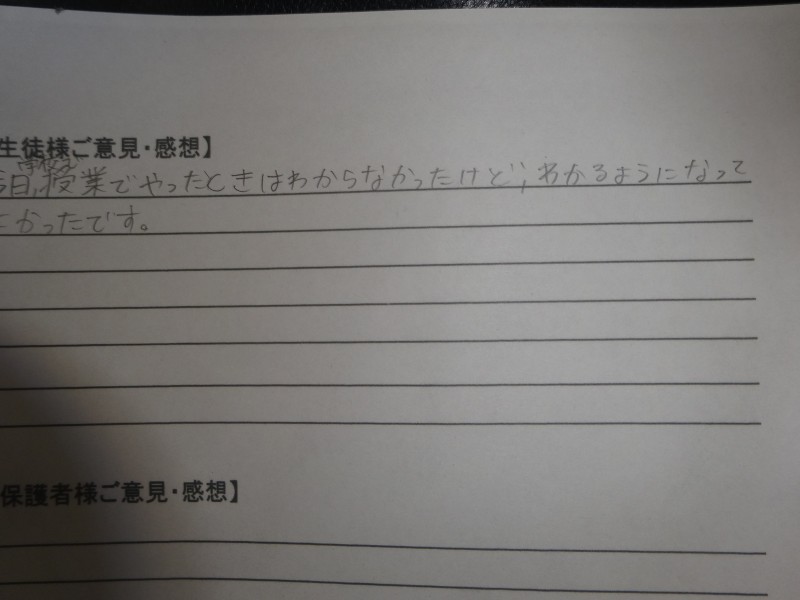 生徒様ご意見・感想】
学校の
今日、授業でやったときはわからなかったけど、わかるようになって
よかったです。
保護者様ご意見・感想】